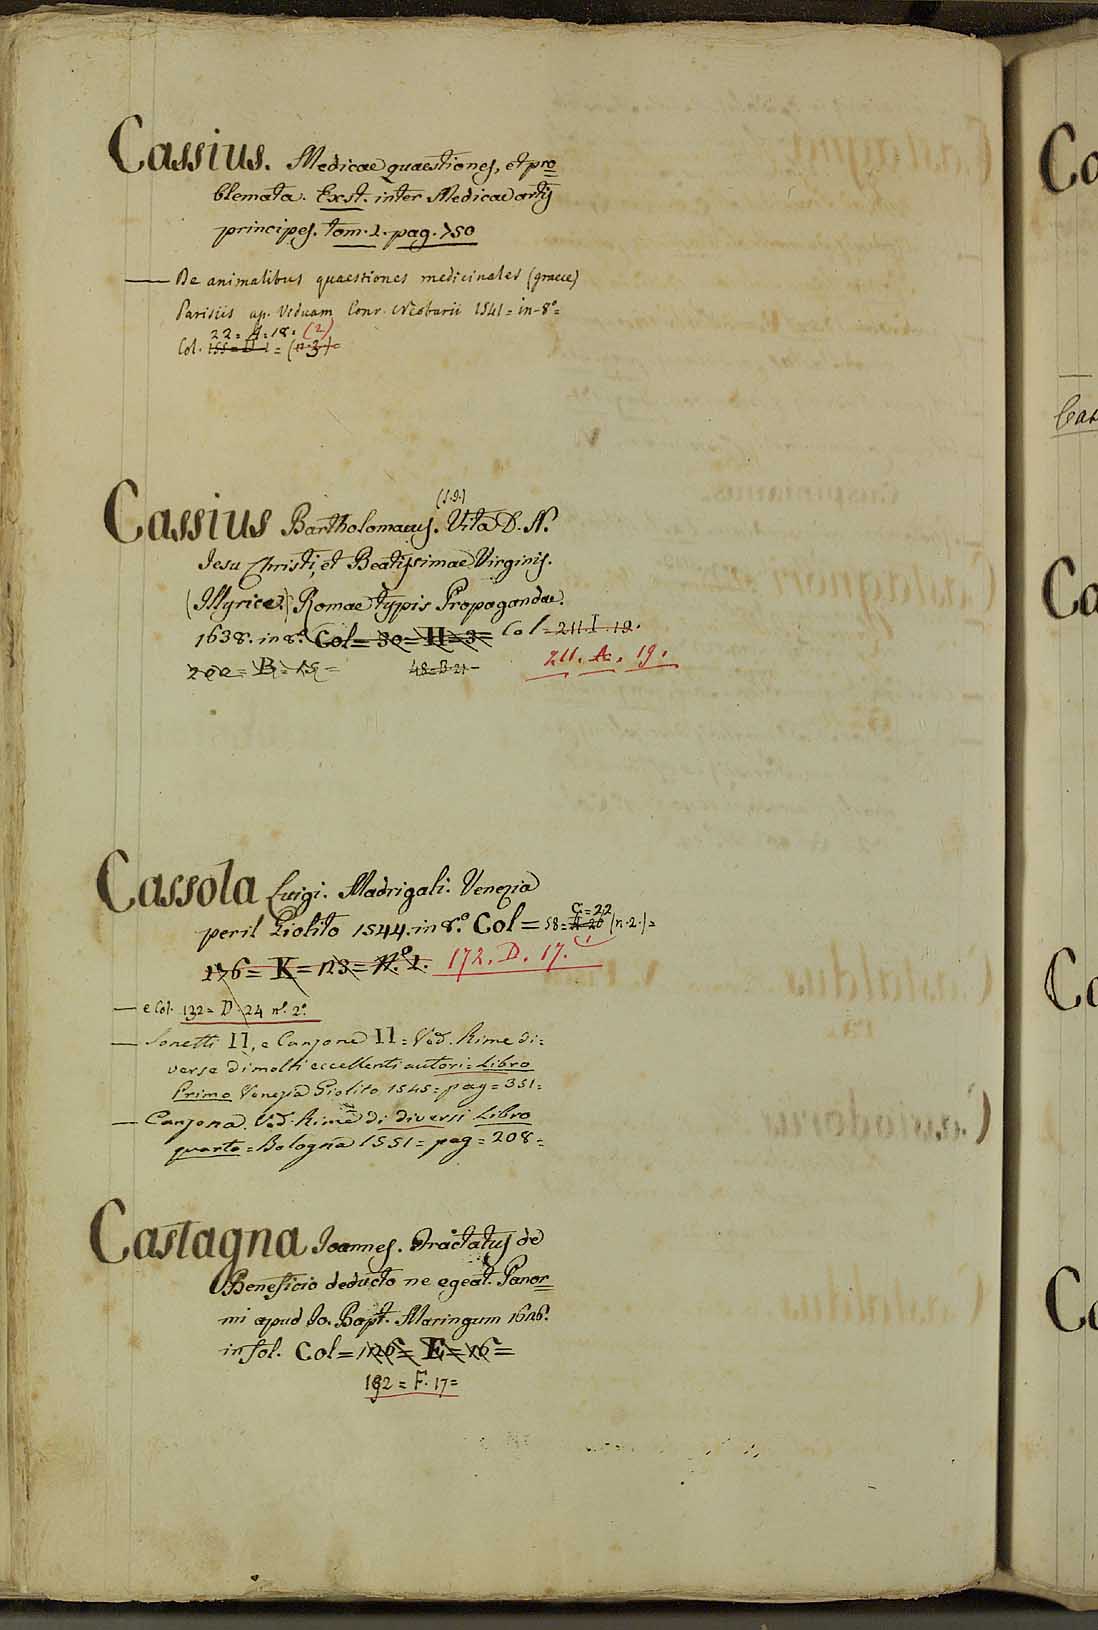 Cassius. Medicae quaestiones, et pro
blemata. Exst. inter Medicae artis
principes. tom. 2. pag. 750
— De animalibus quaestiones medicinales (graece)
Parisiis ap. Viduam Conr. Neobarii 1541 = in-8º =
22 = A. 18. (2)
Col. 155 = D 1 = (n. 3.) =
(S.J.)
Cassius Bartholomaeus. Vita D. N.
Jesu Christi, et Beatissimae Virginis.
(Illyrice.) Romae typis Propagandae.
1638. in 8º. Col = 30 = H = 3 = Col = 211. I. 19.
200 = B. 15 = 48 = B. 21 =
211. A. 19.
Cassola Luigi. Madrigali. Venezia
C. = 22
per il Giolito 1544. in 8º. Col = 58 = A 20 (n. 2.) =
176 = K = 23 = Nº. 2. 172. D. 17.
— e Col. 132 = D. 24 nº. 2º.
— Sonetti II, e Canzone II = Ved. Rime di =
verse di molti eccellenti autori = Libro
Primo Venezia Giolito 1545 = pag = 351 =
— Canzona. Ved. Rime di diversi Libro
quarto = Bologna 1551 = pag = 208 =
Castagna Joannes. Tractatus de
Beneficio deducto ne egeat. Panor =
mi apud Jo. Bapt. Maringum 1626.
in fol. Col = 126 = E = 16 =
192 = F. 17 =
Ca
Cas
Ca
Ca
Ca